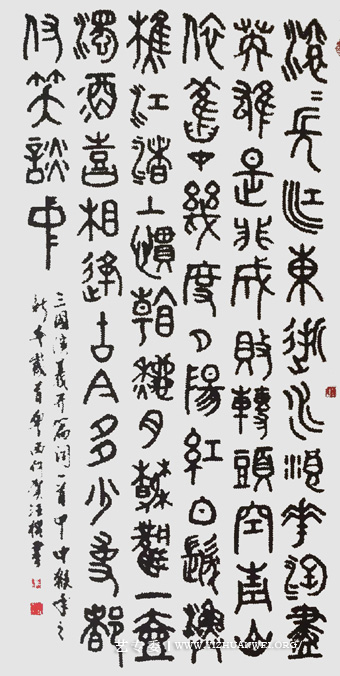 滾〻長江東逝水浪花淘盡
英雄是非成敗轉頭空青山
依舊在幾度夕陽紅白髮漁
樵江渚上慣看秋月春風一壺
濁酒喜相逢古今多少事都
付笑談中
三國演義開篇詞一首甲申猴年之
新年歲首 書
艺专委 WWW.YIZHUANWEI.ORG